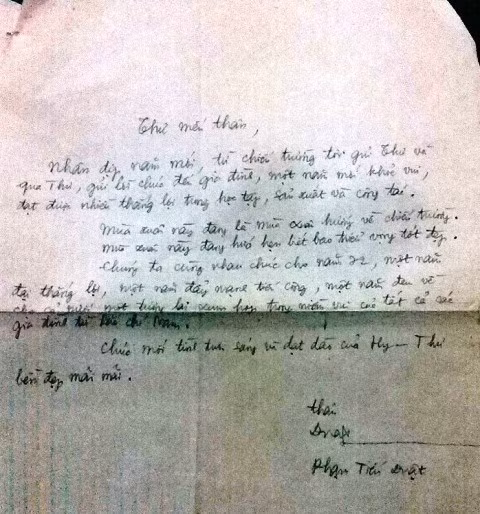 Thư mến thân,
Nhân dịp năm mới, từ chiến trường tôi gửi Thư và
qua Thư, gửi lời chúc đến gia đình, một năm mới khỏe vui,
đạt được nhiều thắng lợi trong học tập, sản xuất và công tác.
Mùa xuân này đang là mùa xuân hướng về chiến trường.
Mùa xuân này đang hứa hẹn biết bao triển vọng tốt đẹp.
Chúng ta cùng nhau chúc cho năm 72, một năm
đại thắng lợi, một năm đầy mạnh tiến công, một năm đem về
cho một tương lai sum họp trong niềm vui của tất cả các
gia đình từ Bắc chí Nam.
Chúc mối tình trong sáng và đạt dào của Hy - Thư
bền đẹp mãi mãi.
thân
Duật
Phạm Tiến Duật